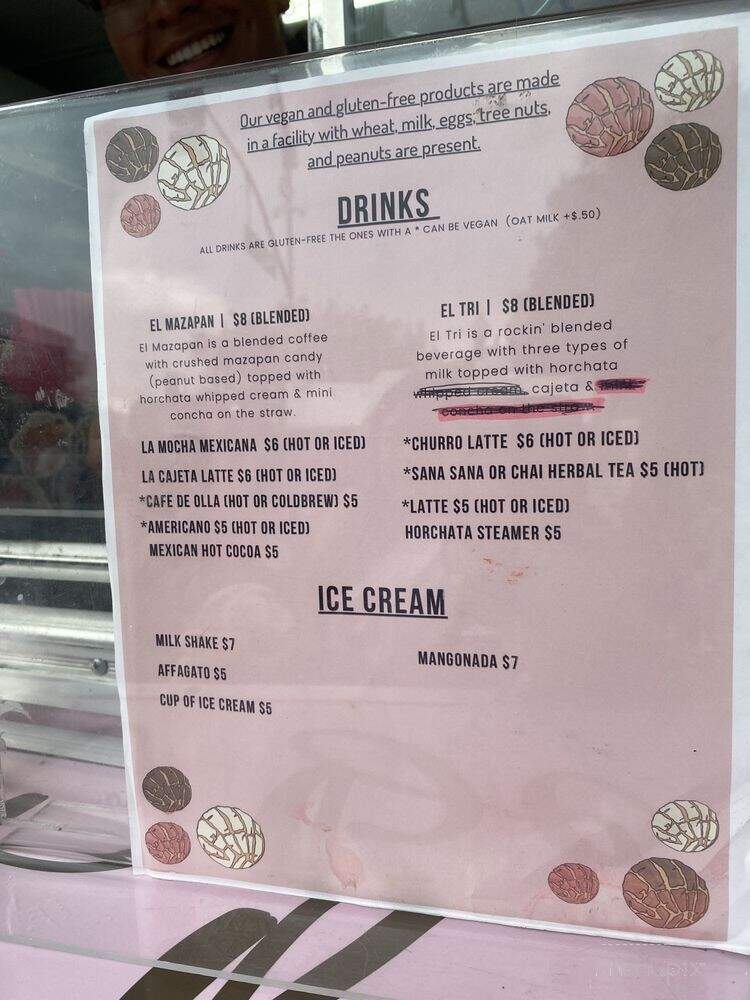 Our vegan and gluten-free products are made
in a facility with wheat, milk, eggs, tree nuts,
and peanuts are present.
DRINKS
ALL DRINKS ARE GLUTEN-FREE THE ONES WITH A * CAN BE VEGAN (OAT MILK +$.50)
EL MAZAPAN | $8 (BLENDED)
El Mazapan is a blended coffee
with crushed mazapan candy
(peanut based) topped with
horchata whipped cream & mini
concha on the straw.
EL TRI | $8 (BLENDED)
El Tri is a rockin' blended
beverage with three types of
milk topped with horchata
whipped cream, cajeta &
concha on the straw.
LA MOCHA MEXICANA $6 (HOT OR ICED)
LA CAJETA LATTE $6 (HOT OR ICED)
*CAFE DE OLLA (HOT OR COLDBREW) $5
*AMERICANO $5 (HOT OR ICED)
MEXICAN HOT COCOA $5
*CHURRO LATTE $6 (HOT OR ICED)
*SANA SANA OR CHAI HERBAL TEA $5 (HOT)
*LATTE $5 (HOT OR ICED)
HORCHATA STEAMER $5
ICE CREAM
MILK SHAKE $7
AFFAGATO $5
CUP OF ICE CREAM $5
MANGONADA $7